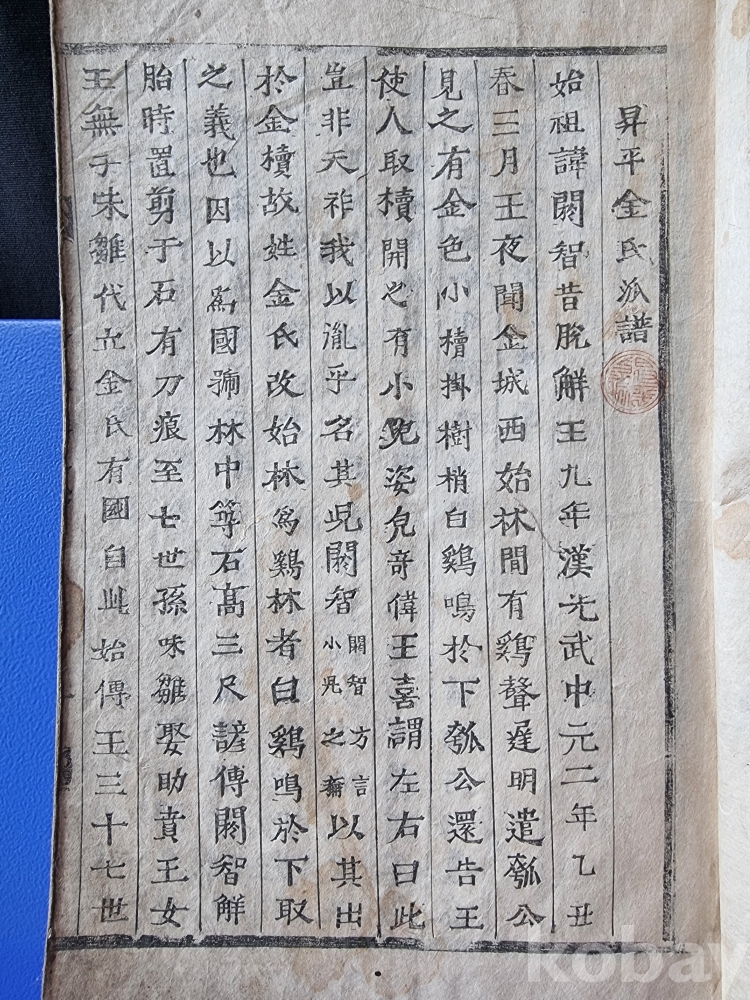 昇平金氏派譜
始祖諱閼智昔脫解王九年漢光武中元二年乙丑
春三月王夜聞金城西始林間有鷄聲遲明遣瓠公
見之有金色小櫝掛樹梢白鷄鳴於下瓠公還告王
使人取櫝開之有小兒姿皃奇偉王喜謂左右曰此
豈非天祚我以胤乎名其児閼智閼智方言小児之稱以其出
於金櫝故姓金氏改始林爲鷄林者白鷄鳴於下取
之義也因以爲國號林中等石高三尺諺傳閼智解
胎時置剪于石有刀痕至七世孫味雛娶助賁王女
王無子味雛代立金氏有國自此始傳王三十七世
kobay